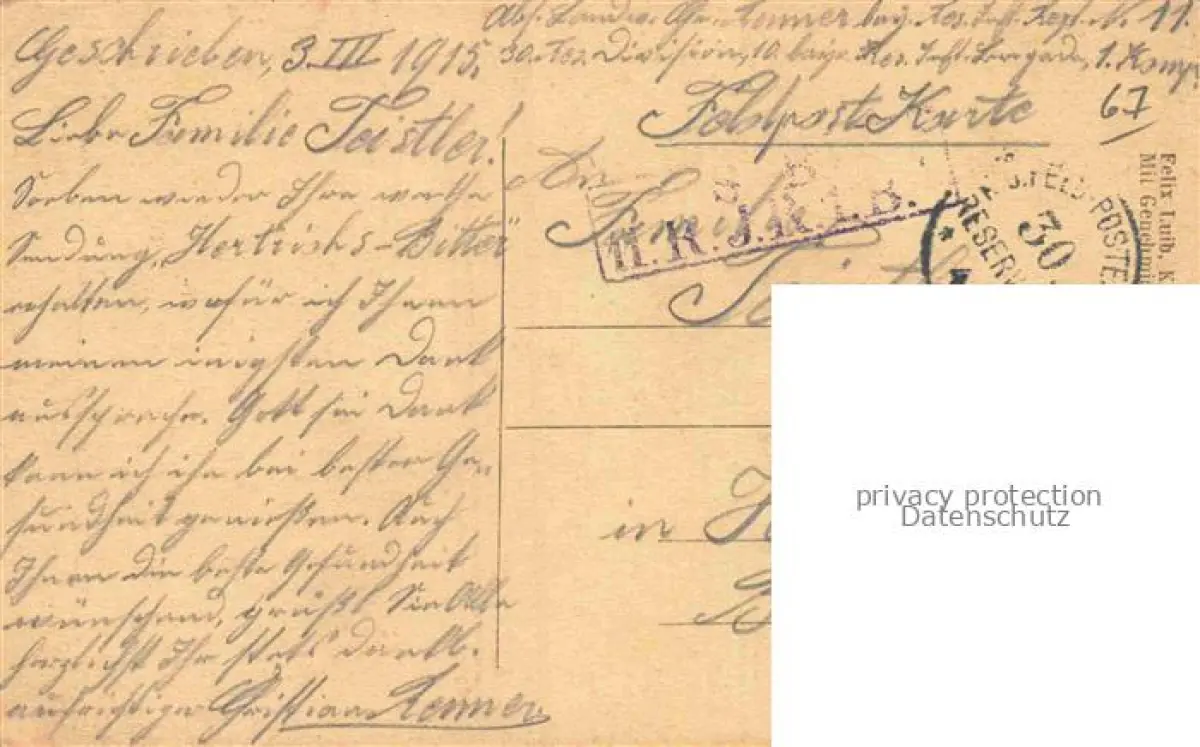 Abs. Landw. Chr. Renner bay. Res. Inft. Regt. Nr. 11.
30. Res. Division, 10. bayr. Res. Inft. Brigade, 1. Komp.
Geschrieben, 3. III 1915.
Liebe Familie Teistler!
Soeben wieder Ihre werthe
Sendung „Hertrichs-Bitter"
erhalten, wofür ich Ihnen
meinen innigsten Dank
ausspreche. Gott sei Dank
kann ich ihn bei bester Ge-
sundheit genießen. Auch
Ihnen die beste Gesundheit
wünschend, grüßt Sie Alle
herzlichst Ihr stets dankb.
aufrichtiger Christian Renner.
Feldpost-Karte
67
An
Familie
in
II. R. J. R. I. B.
FELD-POSTE
30
RESERV
Felix Luib, K
Mit Genehmi
privacy protection
Datenschutz